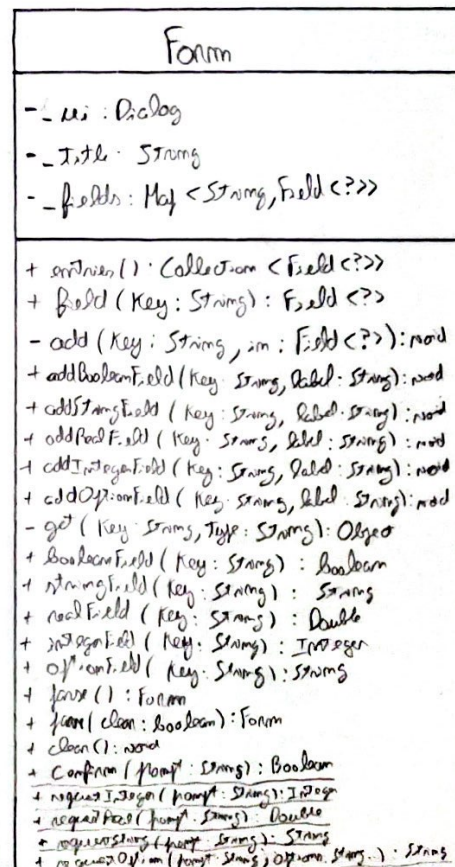 Form
- _ui : Dialog
- _title : String
- _fields : Map <String, Field <?>>
+ entries() : Collection <Field <?>>
+ field (key : String) : Field <?>
- add (key : String, in : Field <?>) : void
+ addBooleanField (key : String, label : String) : void
+ addStringField (key : String, label : String) : void
+ addRealField (key : String, label : String) : void
+ addIntegerField (key : String, label : String) : void
+ addOptionField (key : String, label : String) : void
- get (key : String, type : String) : Object
+ booleanField (key : String) : boolean
+ stringField (key : String) : String
+ realField (key : String) : Double
+ integerField (key : String) : Integer
+ optionField (key : String) : String
+ parse () : Form
+ parse (clear : boolean) : Form
+ clear () : void
+ confirm (prompt : String) : Boolean
+ requestInteger (prompt : String) : Integer
+ requestReal (prompt : String) : Double
+ requestString (prompt : String) : String
+ requestOption (prompt : String, options : String...) : String